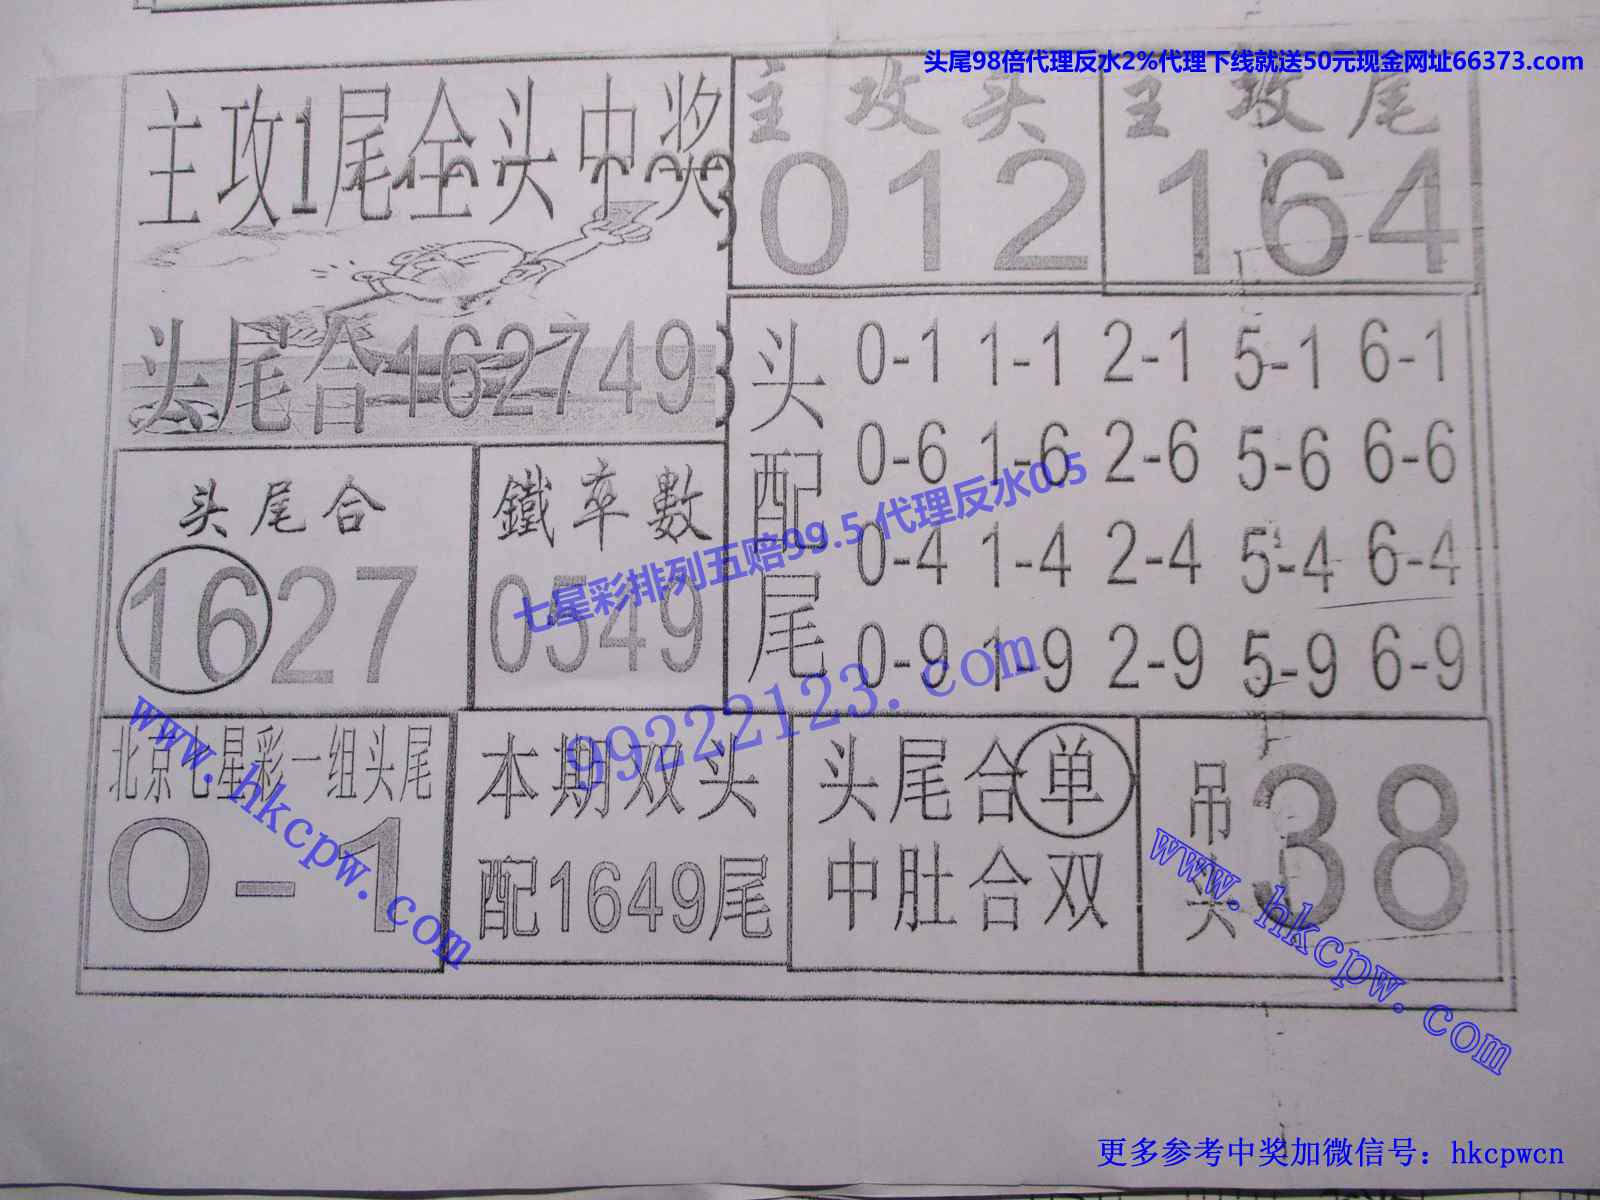 头尾98倍代理反水2%代理下线就送50元现金网址66373.com
主攻1尾全头中奖
主攻头
012
主攻尾
164
头尾合162749
头配尾
0-1 1-1 2-1 5-1 6-1
0-6 1-6 2-6 5-6 6-6
0-4 1-4 2-4 5-4 6-4
0-9 1-9 2-9 5-9 6-9
头尾合
1627
鐵卒數
0549
七星彩排列五赔99.5 代理反水0.5
99222123.com
北京七星彩一组头尾
0-1
本期双头
配1649尾
头尾合单
中肚合双
吊
38
www.hkcpw.com
www.hkcpw.com
更多参考中奖加微信号：hkcpwcn